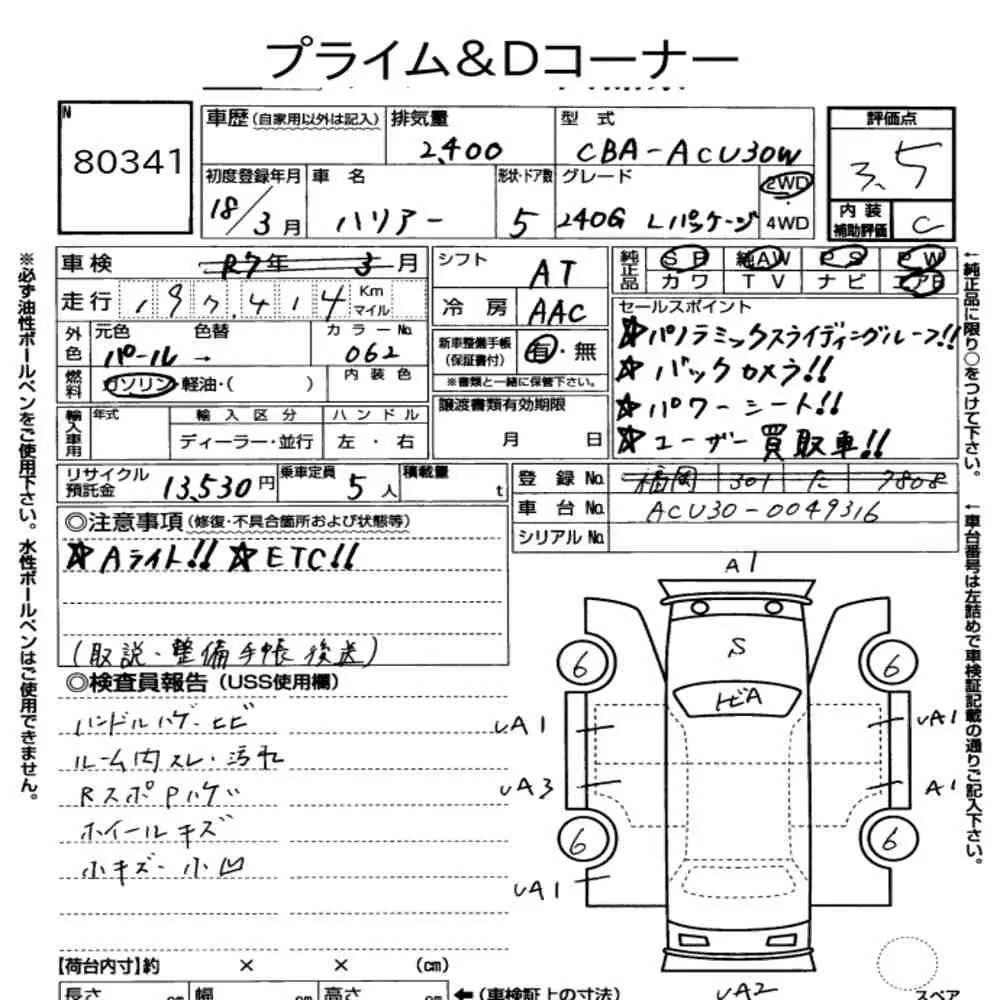 プライム&Dコーナー
N
80341
車歴(自家用以外は記入) 排気量 型式 評価点
2,400 CBA-ACU30W 3.5
初度登録年月 車名 形状・ドア数 グレード
18/3月 ハリアー 5 240G Lパッケージ 2WD・4WD
内装補助評価 C
車検 R7年 3月
走行 197,414 Km マイル
外色 元色 色替 カラーNo.
パール → 062
燃料 ガソリン・軽油・( ) 内装色
輸入車用 年式 輸入区分 ハンドル
ディーラー・並行 左・右
シフト AT
冷房 AAC
新車整備手帳(保証書付) 有・無
※書類と一緒に保管下さい。
譲渡書類有効期限
月 日
純正品 SR 純AW PS PW
カワ TV ナビ エアB
セールスポイント
☆パノラミックスライディングルーフ!!
☆バックカメラ!!
☆パワーシート!!
☆ユーザー買取車!!
リサイクル預託金 13,530円 乗車定員 5人 積載量 t
登録No. 福岡 301 た 7808
車台No. ACU30-0049316
シリアルNo.
◎注意事項(修復・不具合箇所および状態等)
☆Aライト!! ☆ETC!!
(取説・整備手帳後送)
◎検査員報告(USS使用欄)
ハンドルハゲ・ヒビ
ルーム内スレ・汚れ
RスポPハゲ
ホイールキズ
小キズ・小凹
A1
S
トビA
6 6
UA1 UA1
UA3 A1
6 6
UA1
UA2
スペア
【荷台内寸】約 × × (cm)
長さ cm 幅 cm 高さ cm ←(車検証上の寸法)
※必ず油性ボールペンをご使用下さい。水性ボールペンはご使用できません。
←純正品に限り○をつけて下さい。
←車台番号は左詰めで車検証記載の通りご記入下さい。